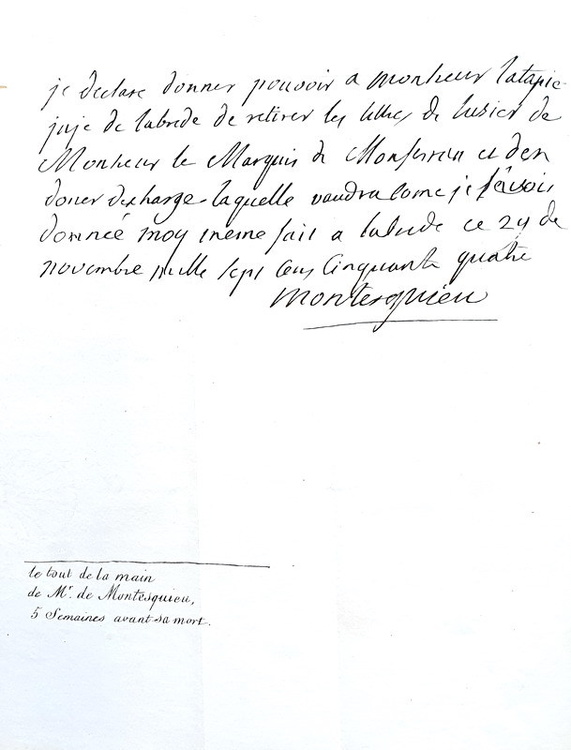 je declare donner pouvoir a monsieur latapie
juje de labrede de retirer les lettres de
Monsieur le Marquis de Monferran et den
doner decharge laquelle vaudra come je l'avois
donnee moy meme fait a labrede ce 29 de
novembre mille sept cens cinquante quatre
montesquieu
le tout de la main
de Mr. de Montesquieu,
5 Semaines avant sa mort.